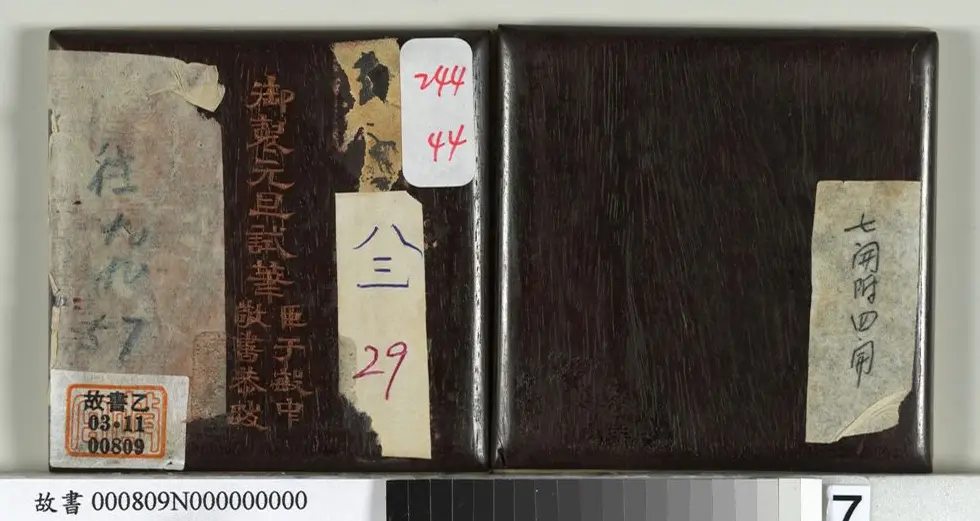 御製元旦試筆
臣于敏中
敬書恭跋
244
44
八
三
29
七開附四開
故書乙
03·11
00809
故書 000809N000000000
7